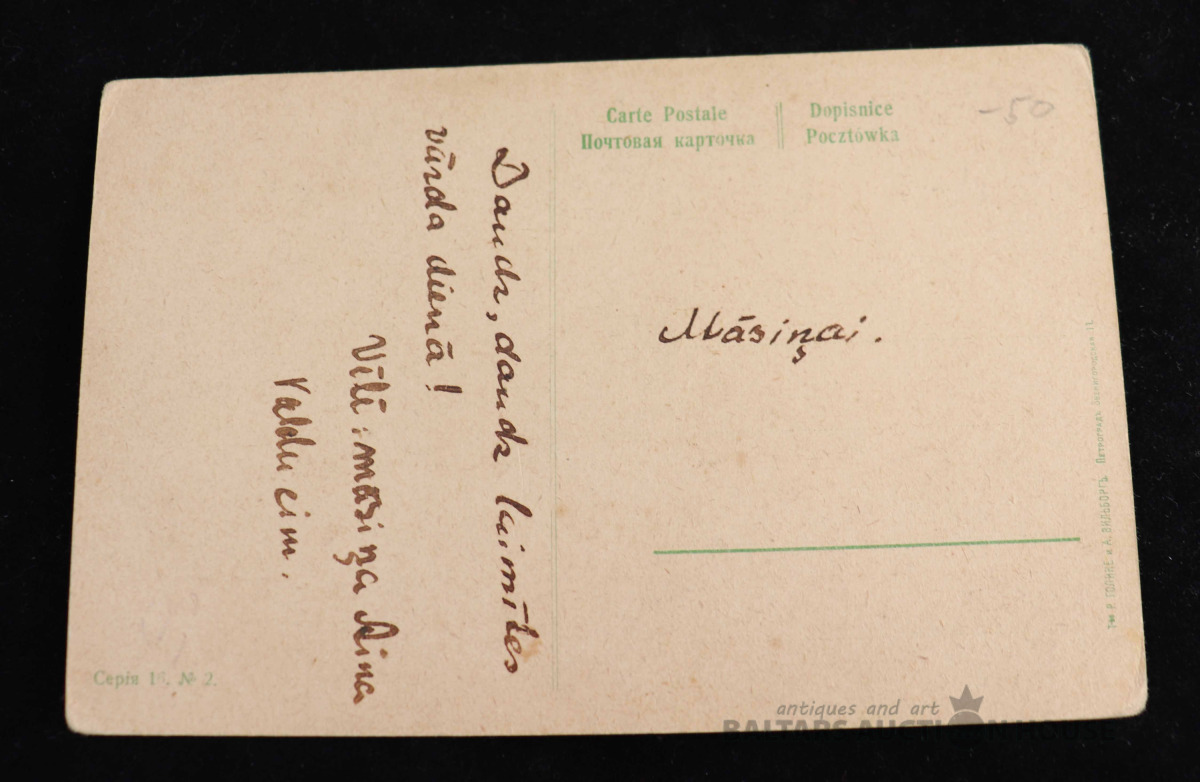 Carte Postale
Почтовая карточка
Dopisnice
Pocztówka
-50
Daudz, daudz laimītes
vārda dienā!
Vēlē: māsiņa Aina
Valdu eim.
Māsiņai.
Серія № 2.
Р. ГОЛИКЕ и А. ВИЛЬБОРГЪ Петроградъ
antiques and art
BALTARS AUCTION HOUSE